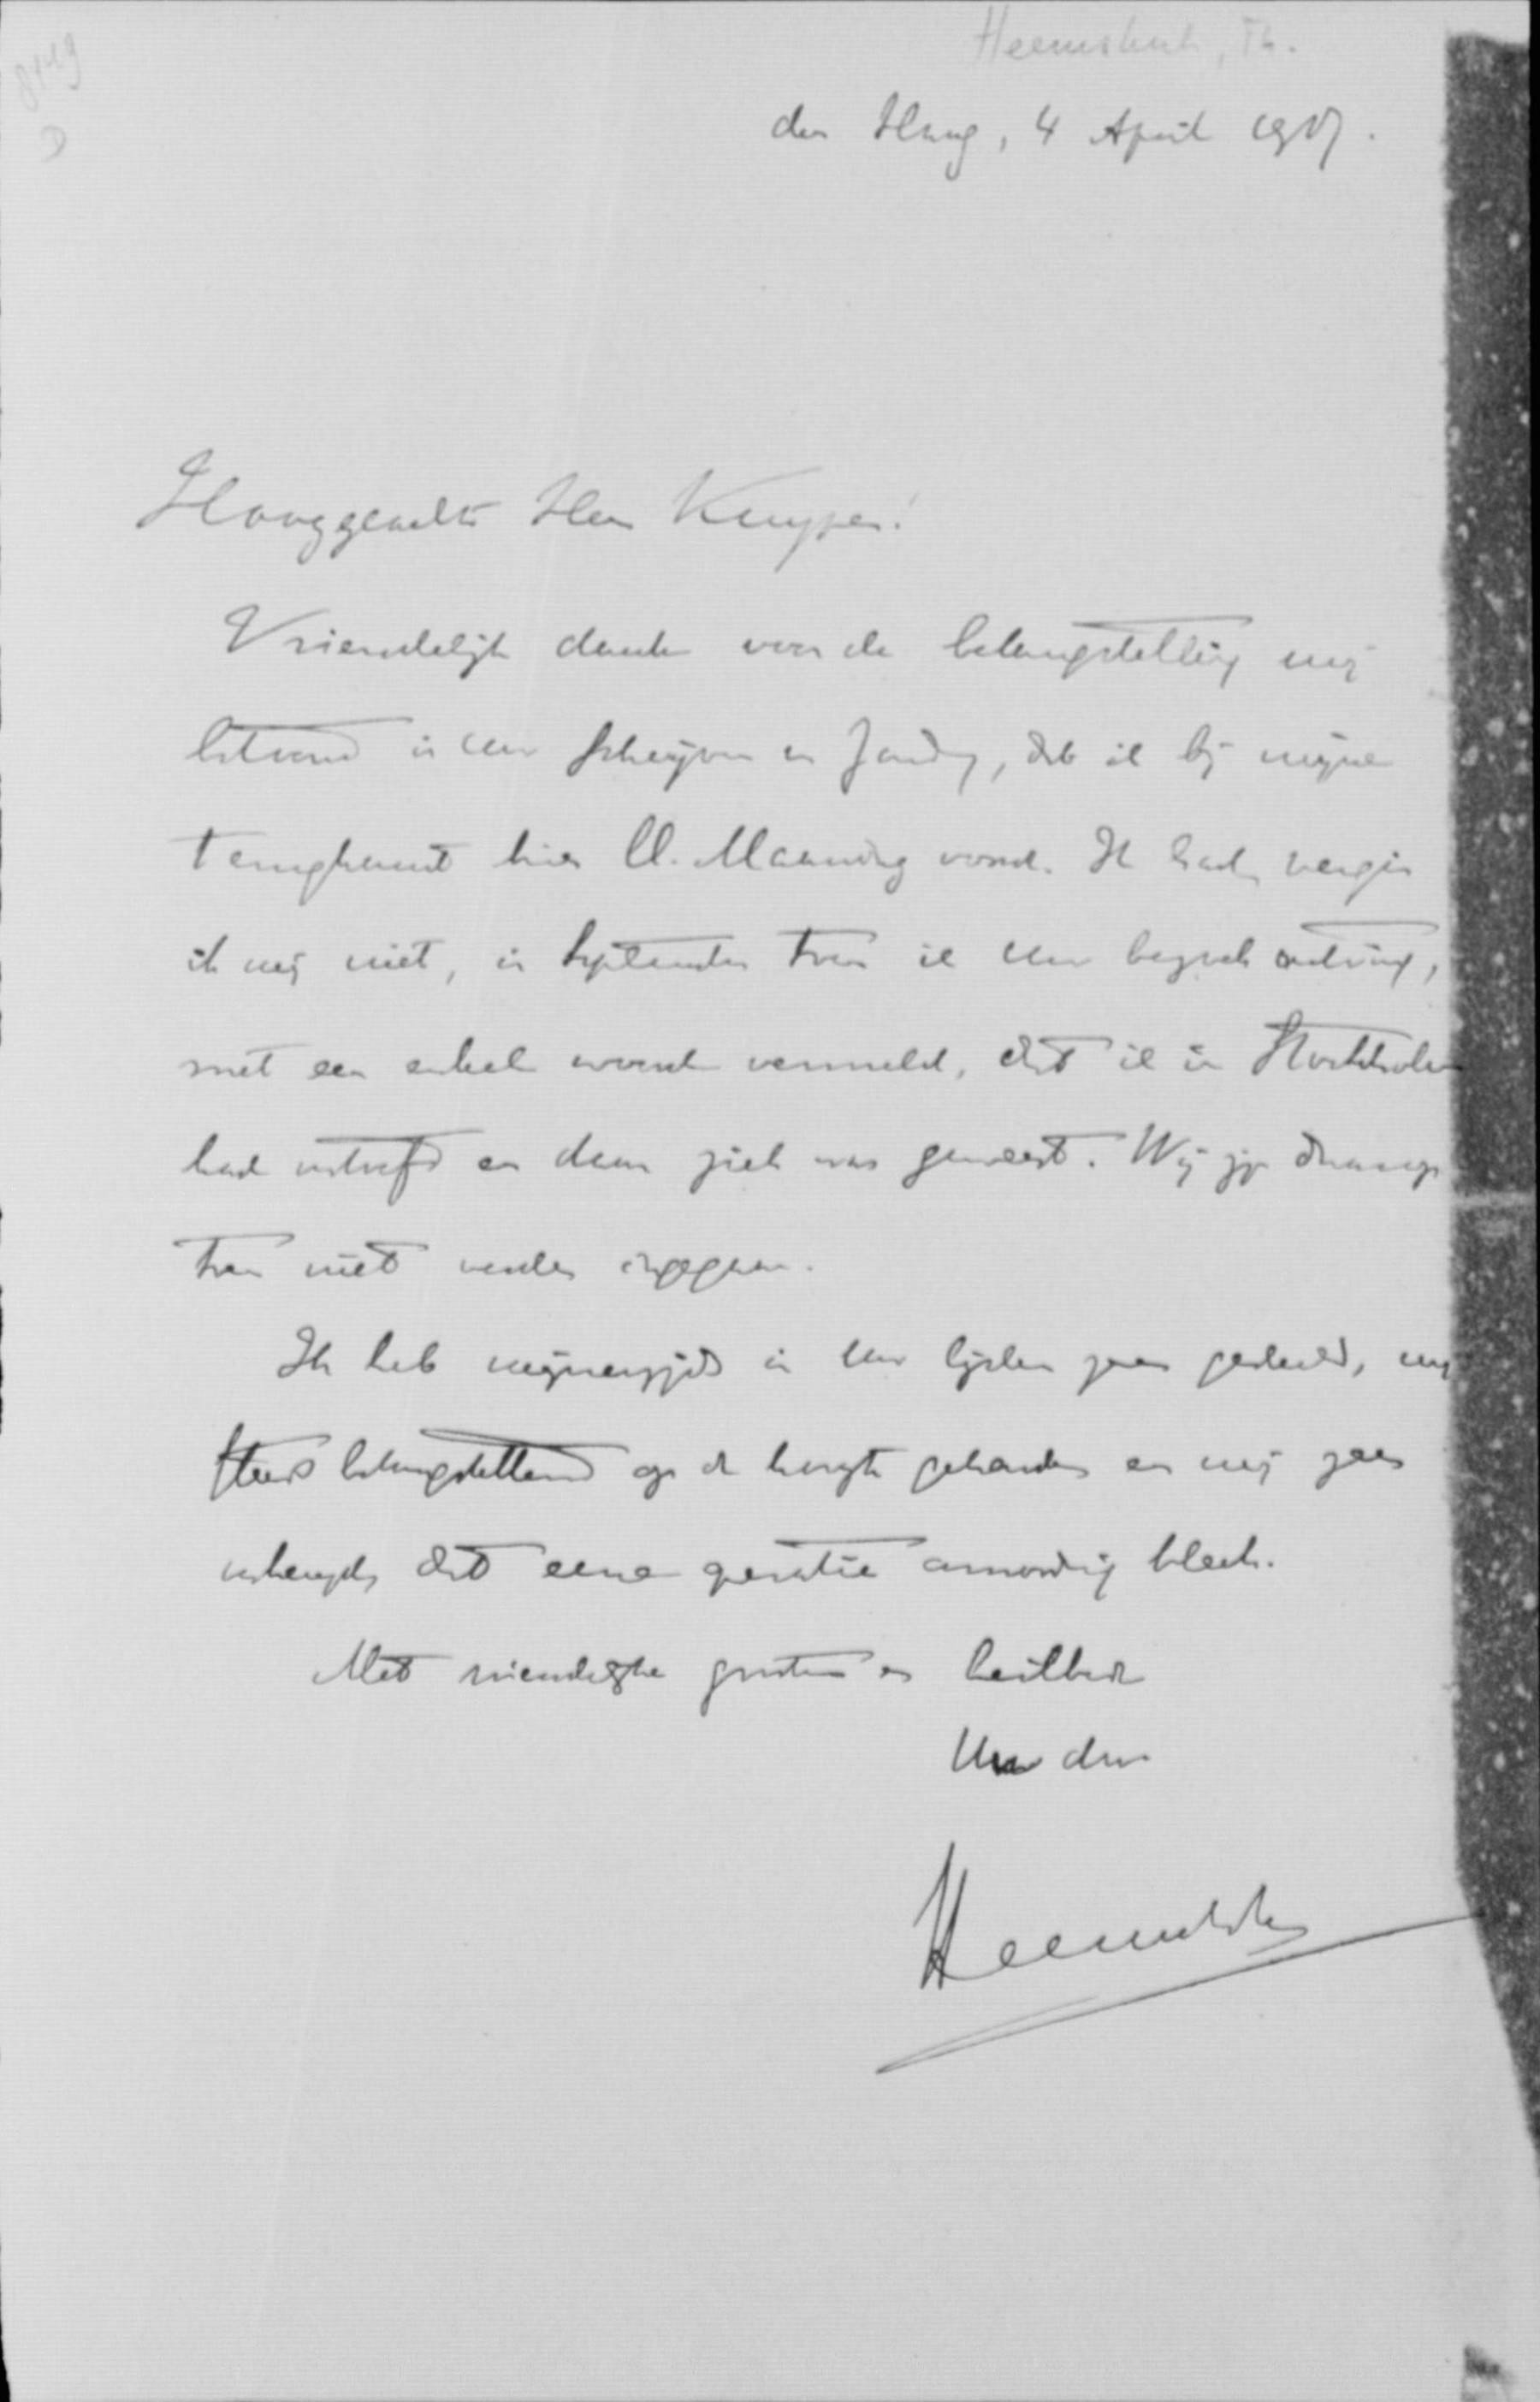 8449
D
Heemskerk, Th.
den Haag, 4 April 1907.
Hooggeachte Heer Kuyper!
Vriendelijk dank voor de belangstelling mij
betoond in Uw schrijven en Zondag, dat ik bij mijne
terugkomst hier ll. Maandag vond. Ik had, vergis
ik mij niet, in September toen ik Uw bezoek ontving,
met een enkel woord vermeld, dat ik in Stockholm
had vertoefd en daar ziek was geweest. Wij zijn daarop
toen niet verder ingegaan.
Ik heb mijnerzijds in Uw lijden zeer gedeeld, mij
steeds belangstellend op de hoogte gehouden en mij zeer
verheugd, dat eene operatie onnoodig bleek.
Met vriendelijke groeten en heilbede
Uw dw
Heemskerk